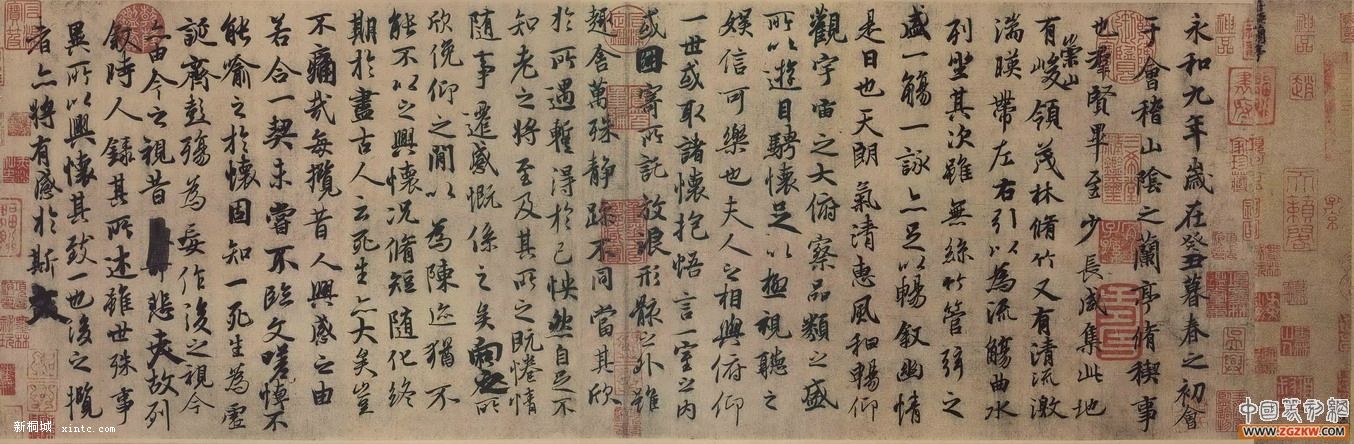 永和九年歲在癸丑暮春之初會
于會稽山陰之蘭亭脩稧事
也羣賢畢至少長咸集此地
有崇山峻領茂林脩竹又有清流激
湍暎帶左右引以為流觴曲水
列坐其次雖無絲竹管弦之
盛一觴一詠亦足以暢敘幽情
是日也天朗氣清惠風和暢仰
觀宇宙之大俯察品類之盛
所以遊目騁懷足以極視聽之
娛信可樂也夫人之相與俯仰
一世或取諸懷抱悟言一室之內
或因寄所託放浪形骸之外雖
趣舍萬殊靜躁不同當其欣
於所遇暫得於己怏然自足不
知老之將至及其所之既惓情
隨事遷感慨係之矣向之所
欣俛仰之閒以為陳迹猶不
能不以之興懷況脩短隨化終
期於盡古人云死生亦大矣豈
不痛哉每攬昔人興感之由
若合一契未嘗不臨文嗟悼不
能喻之於懷固知一死生為虛
誕齊彭殤為妄作後之視今
亦由今之視昔悲夫故列
敘時人錄其所述雖世殊事
異所以興懷其致一也後之攬
者亦將有感於斯文
新桐城 xintc.com
中国篆刻網
WWW.ZGZKW.COM